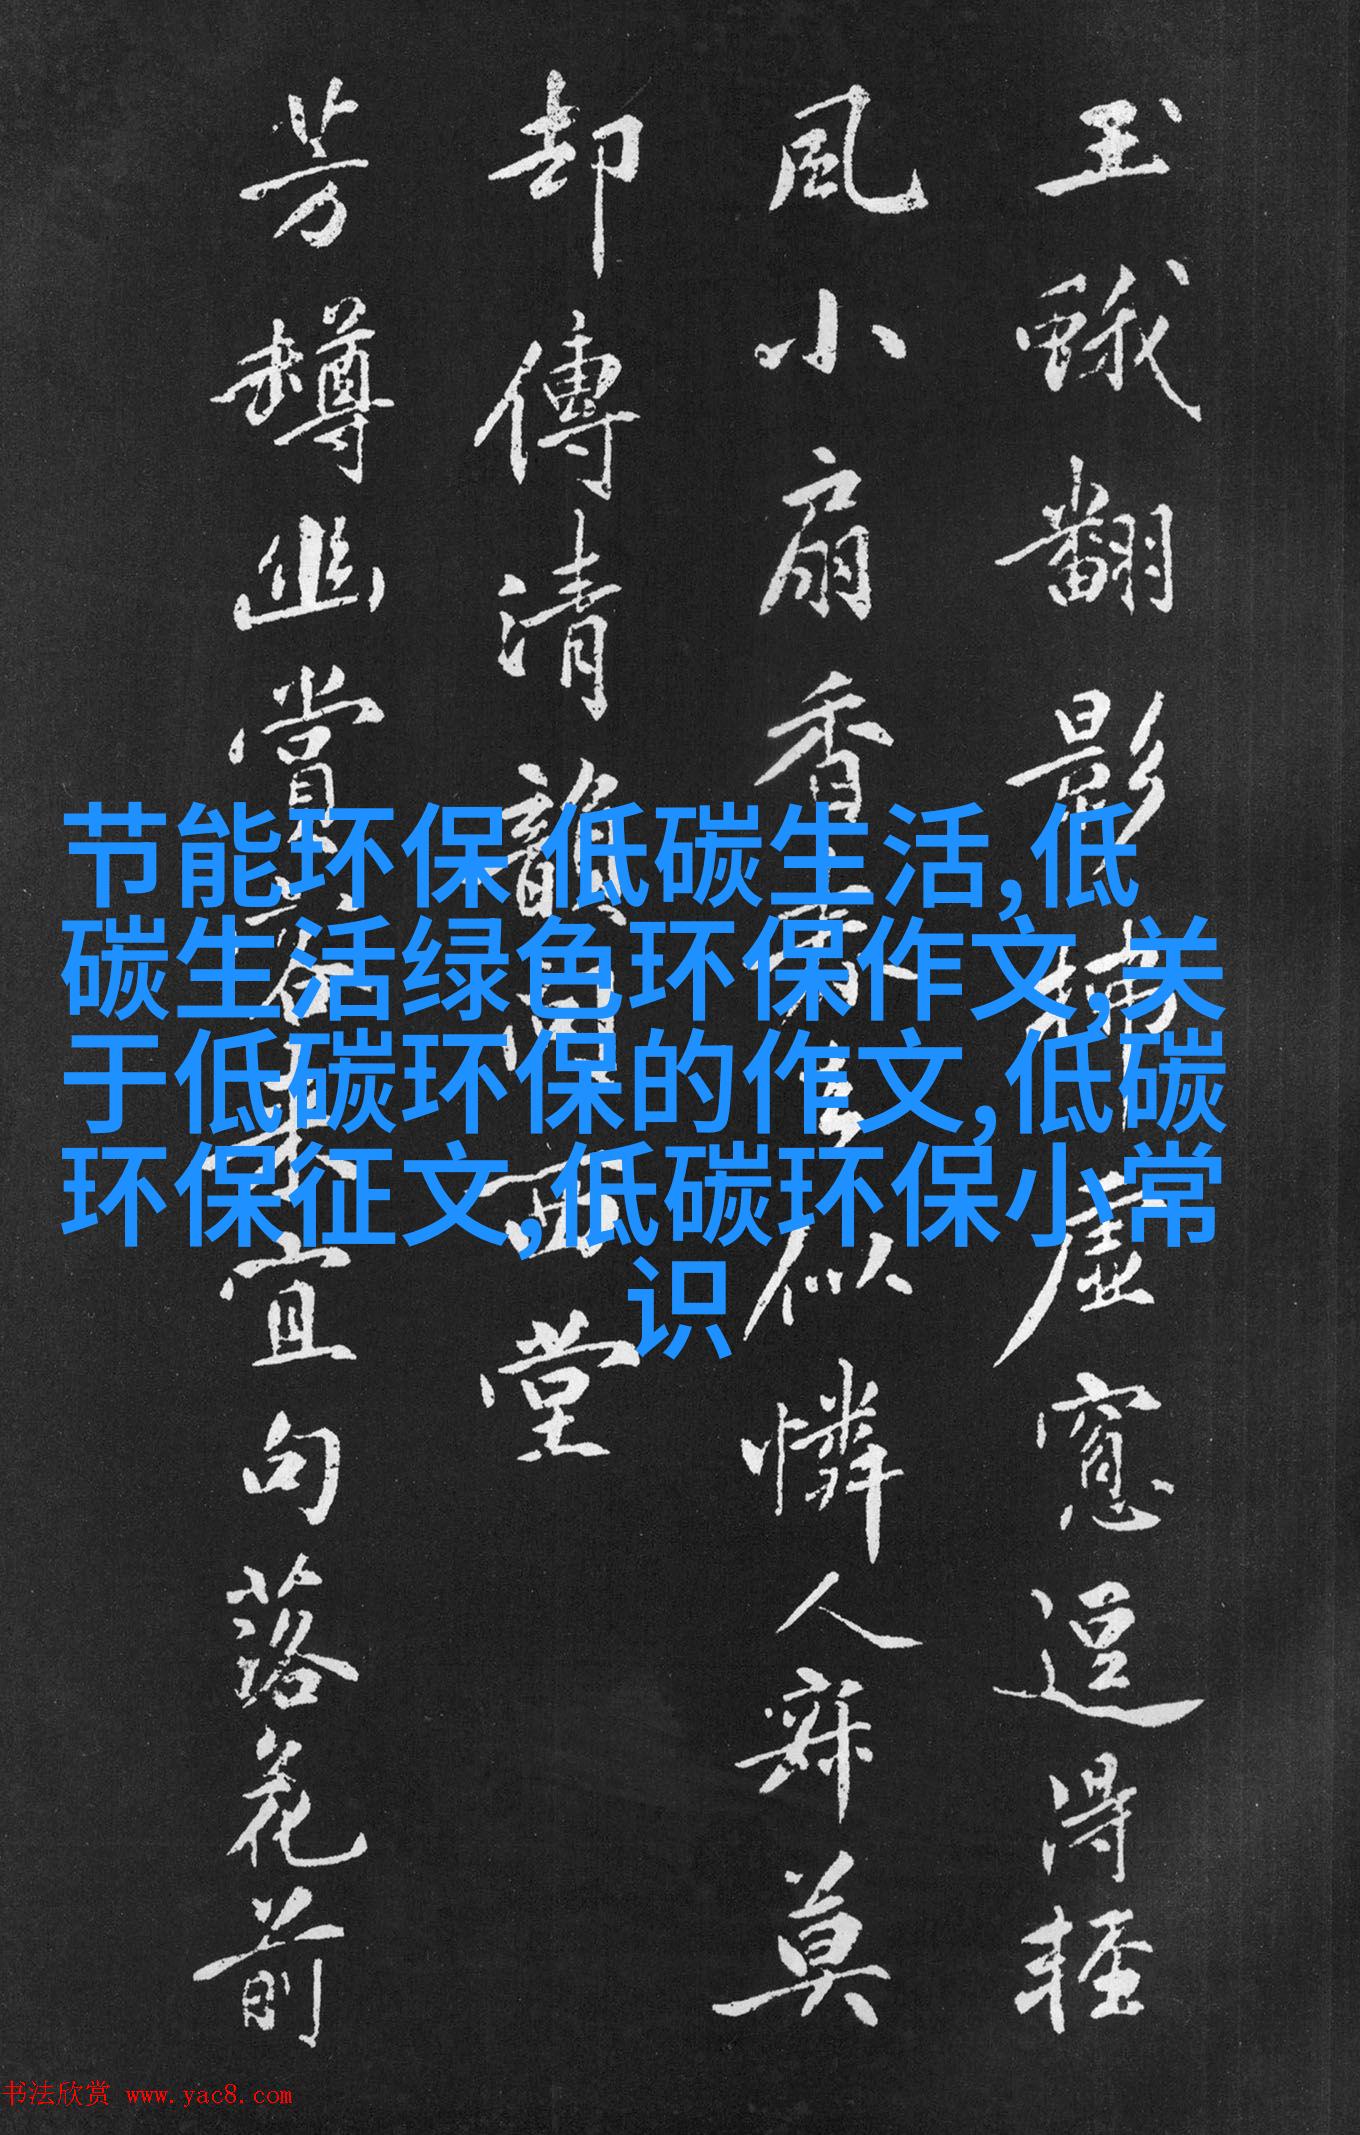 玉蛾翻影拂虛窗逗得輕
風小扇香來似憐人寂莫
却傳清韻向西堂
芳罇幽賞最宜句落花前
节能环保 低碳生活,低
碳生活绿色环保作文,关
于低碳环保的作文,低碳
环保征文,低碳环保小常
识
书法欣赏 www.yac8.com